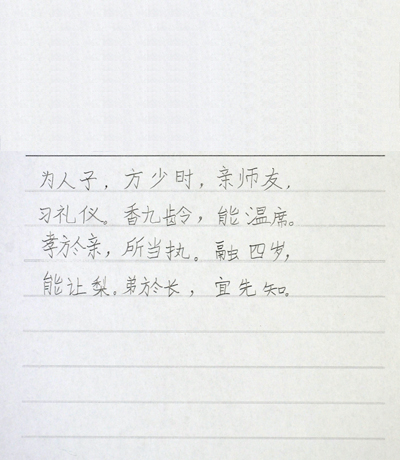 为人子，方少时，亲师友，
习礼仪。香九龄，能温席。
孝於亲，所当执。融四岁，
能让梨。弟於长，宜先知。